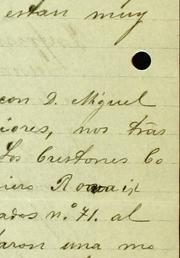 estan muy
con D. Miguel
iores, nos tras
Los Crestones Co
niero Rouaix
ados n.º 71. al
aron una mo